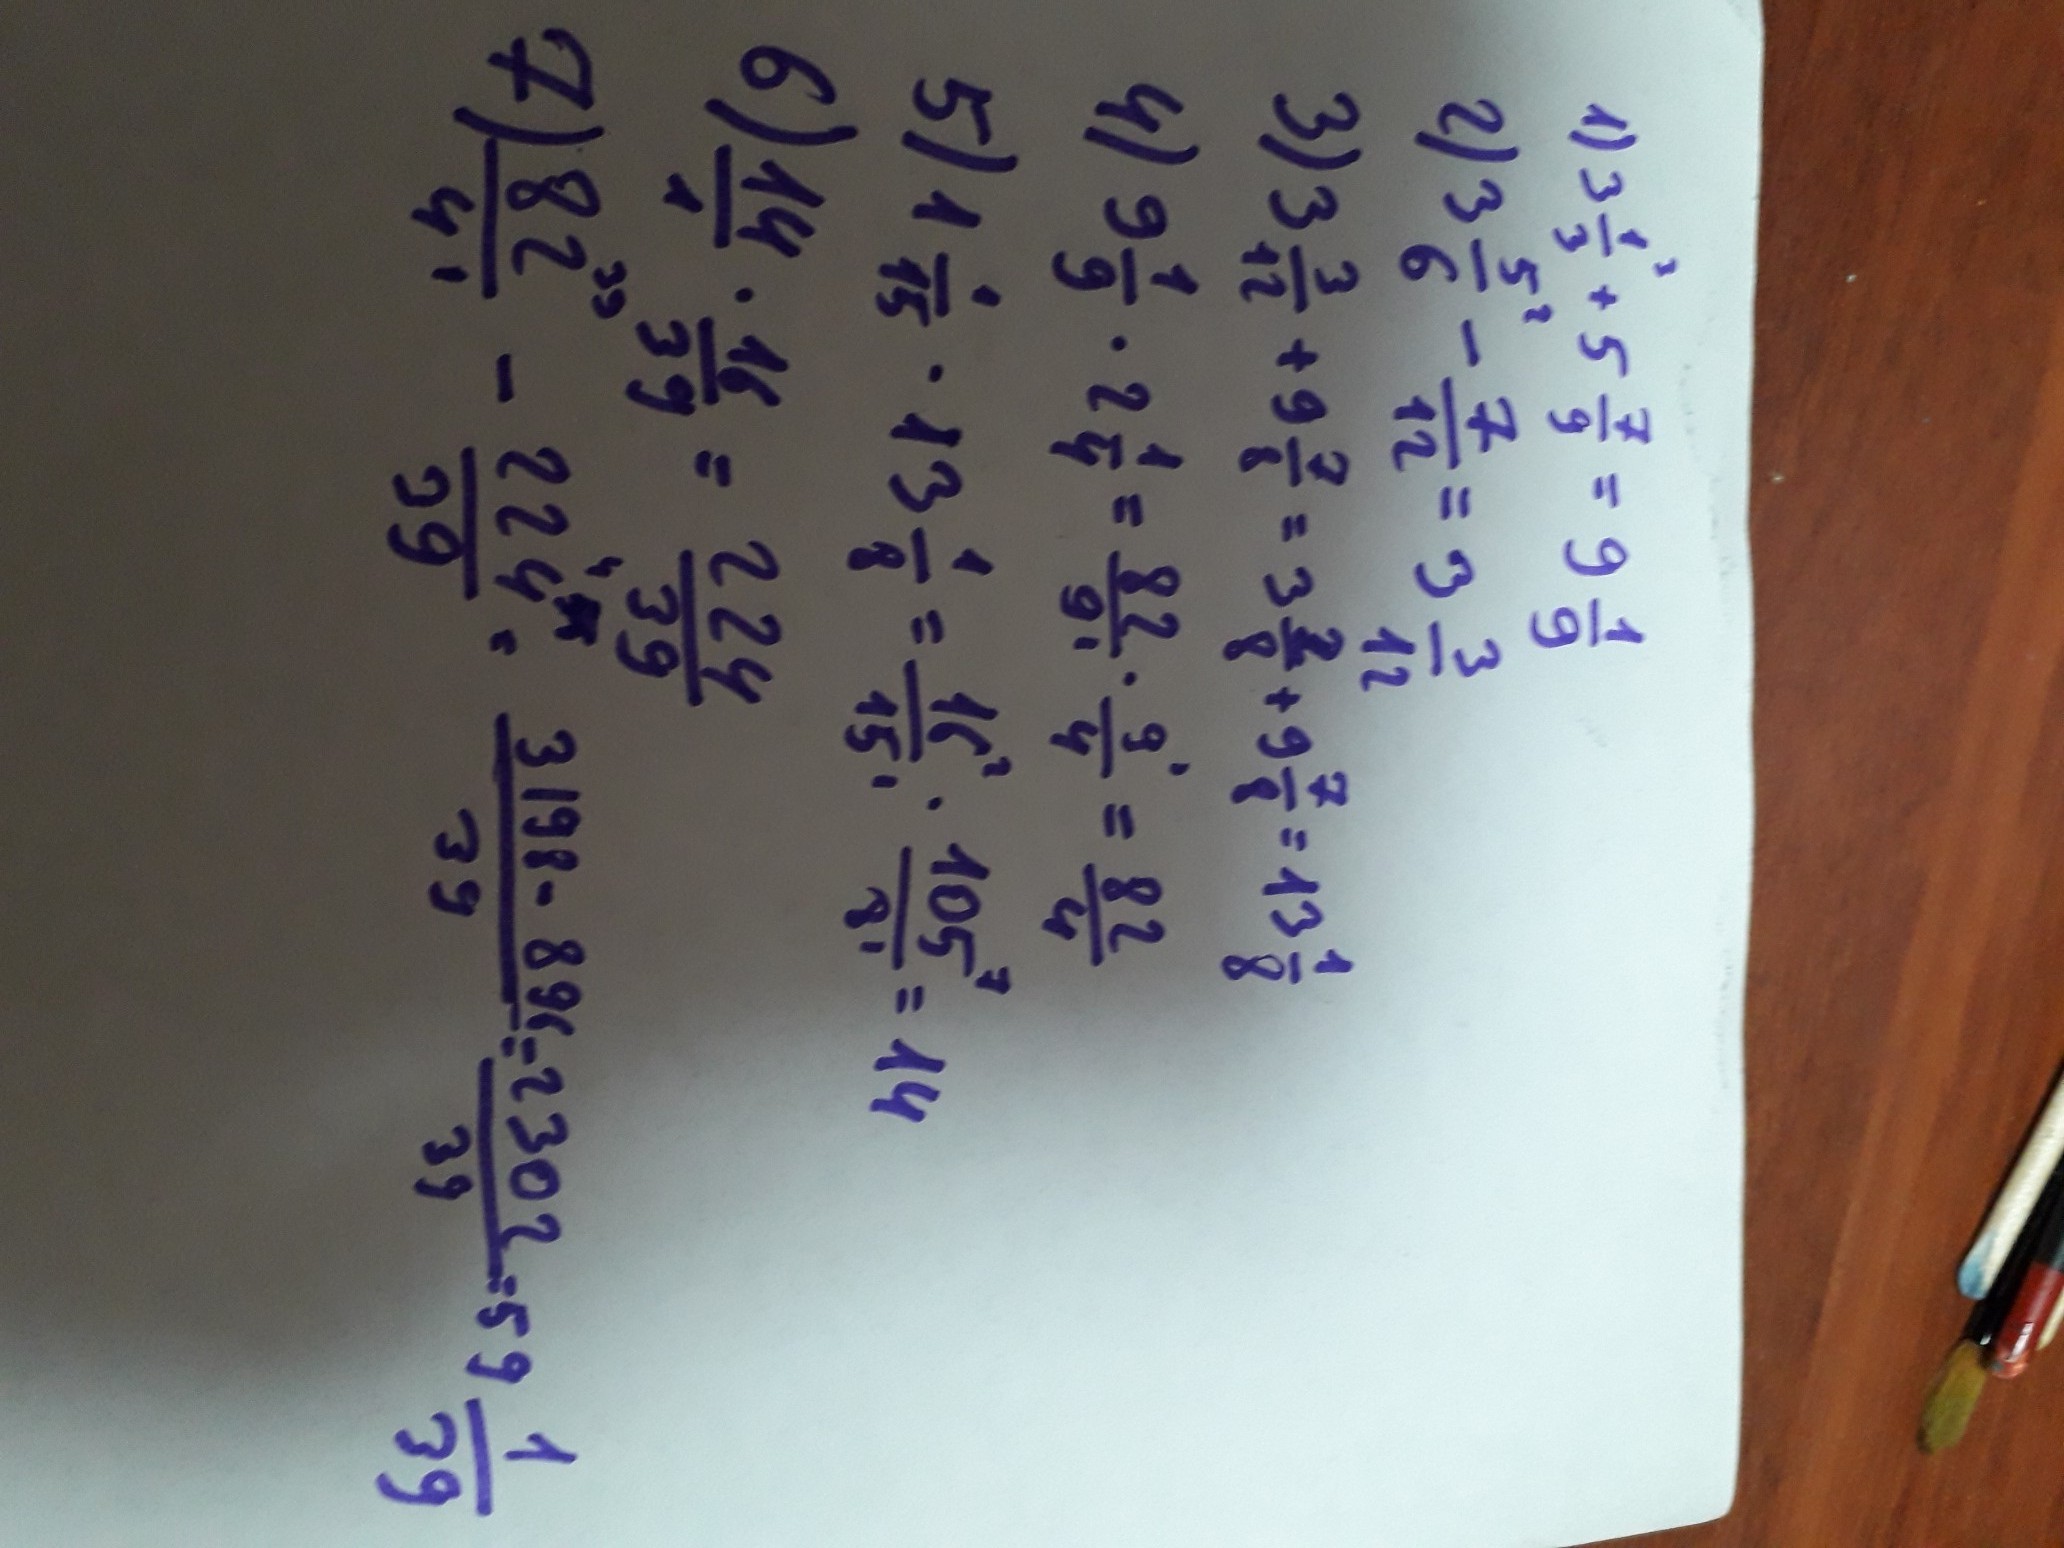 1) 3 1/3 ³ + 5 7/9 = 9 1/9
2) 3 5/6 ² - 7/12 = 3 3/12
3) 3 3/12 + 9 7/8 = 3 2/8 + 9 7/8 = 13 1/8
4) 9 1/9 · 2 1/4 = 82/9 ¹ · 9/4 ¹ = 82/4
5) 1 1/15 · 13 1/8 = 16/15 ² ¹ · 105/8 ⁷ ¹ = 14
6) 14/1 · 16/39 = 224/39
7) 82/4 ³⁹ ¹ - 224/39 ⁴ = 3198-896/39 = 2302/39 = 59 1/39